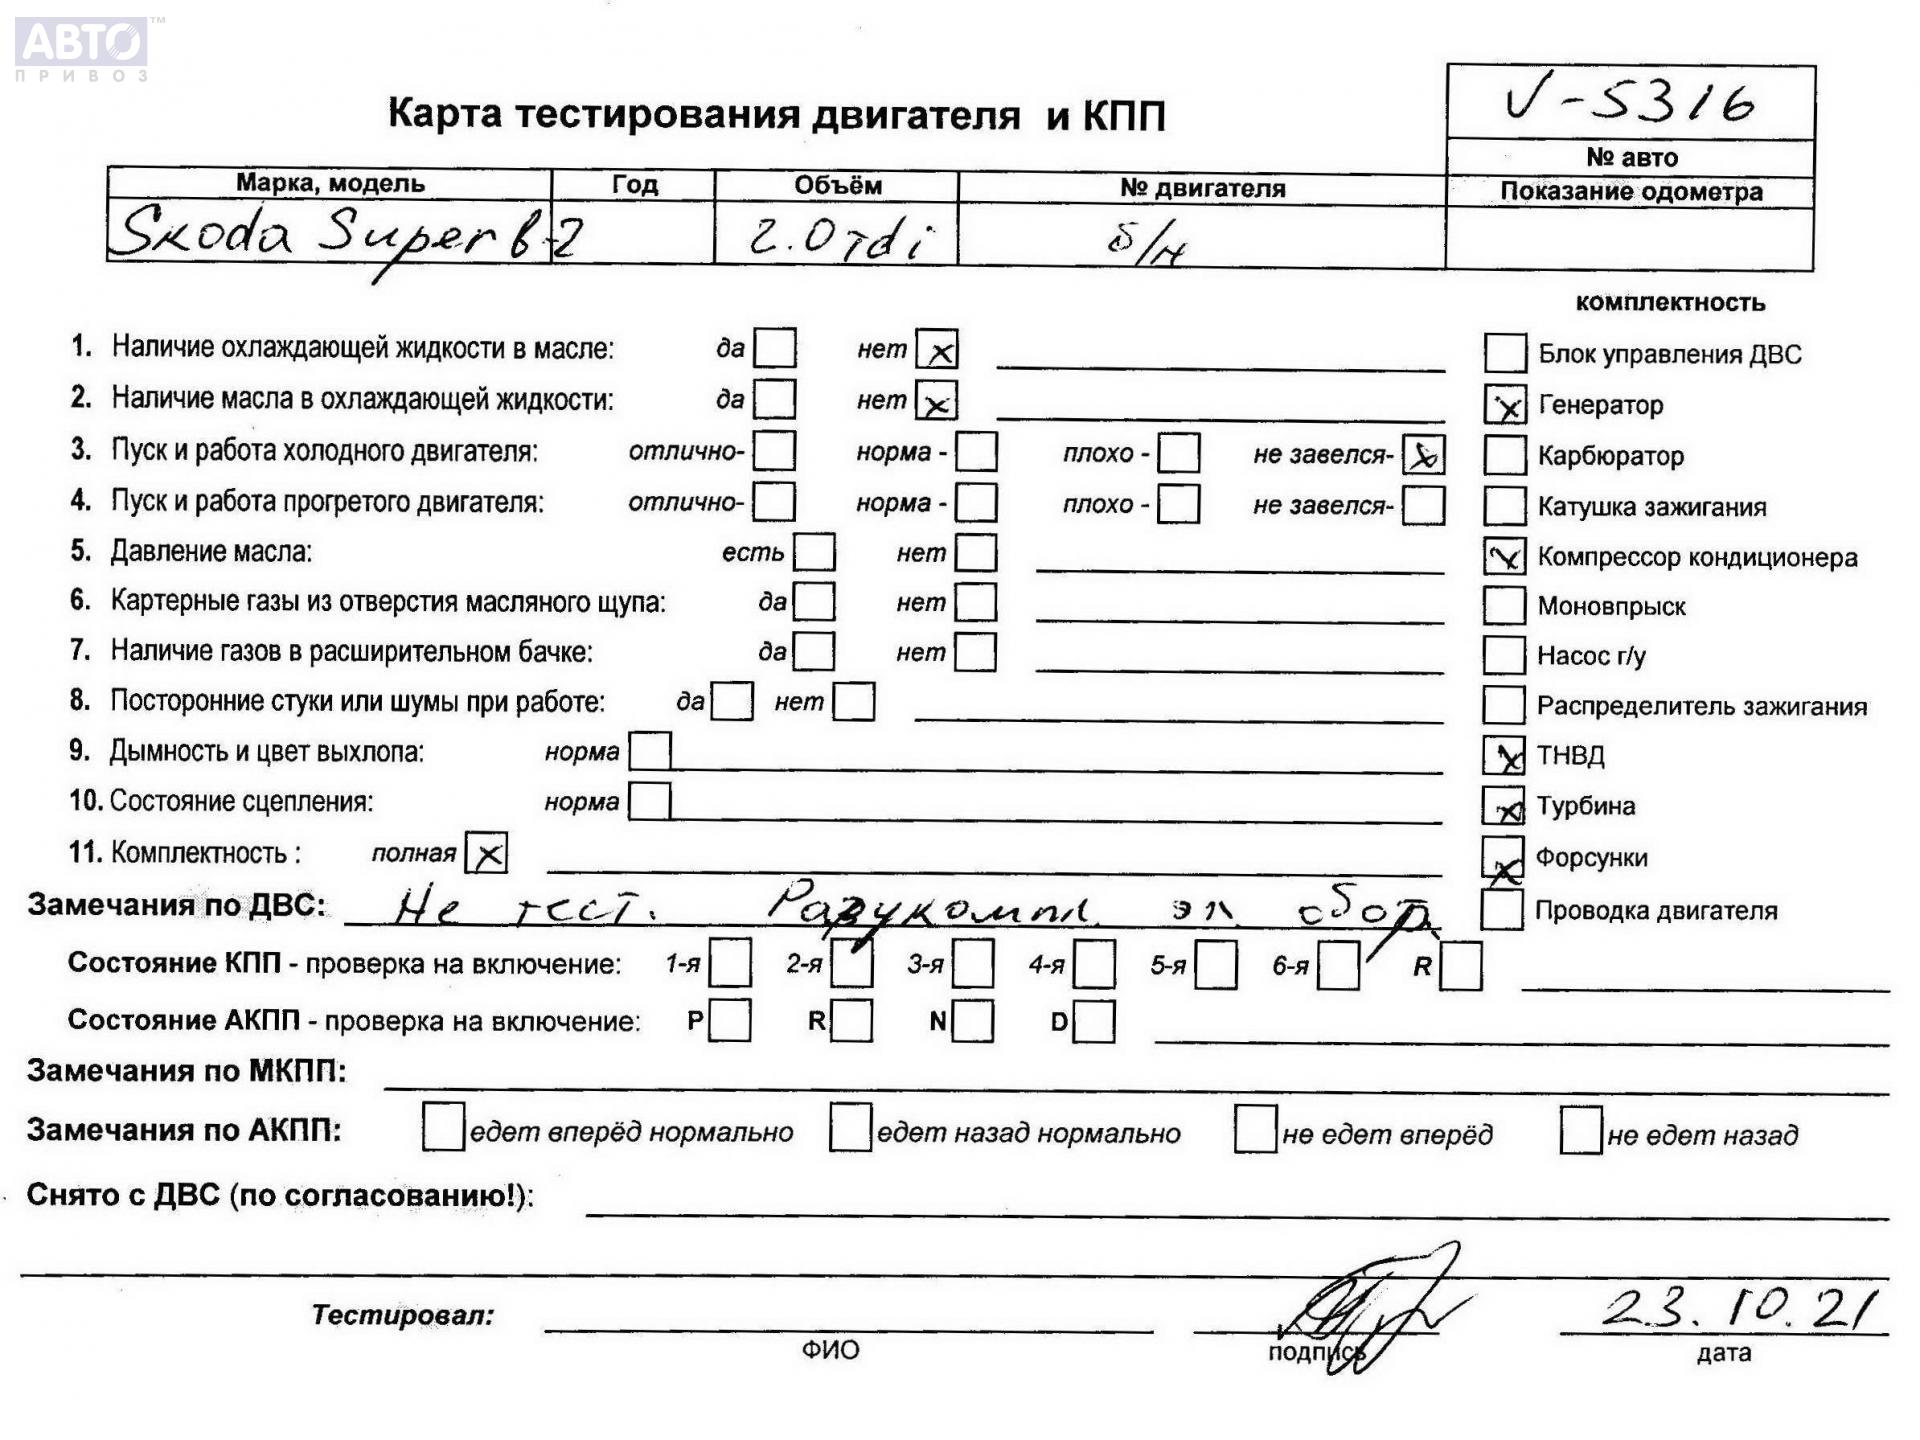 АВТО™
ПРИВОЗ
V-5316
Карта тестирования двигателя и КПП
№ авто
Марка, модель Год Объём № двигателя Показание одометра
Skoda Superb-2 2.0 tdi б/н
комплектность
1. Наличие охлаждающей жидкости в масле: да нет x Блок управления ДВС
2. Наличие масла в охлаждающей жидкости: да нет x x Генератор
3. Пуск и работа холодного двигателя: отлично- норма - плохо - не завелся- x Карбюратор
4. Пуск и работа прогретого двигателя: отлично- норма - плохо - не завелся- Катушка зажигания
5. Давление масла: есть нет x Компрессор кондиционера
6. Картерные газы из отверстия масляного щупа: да нет Моновпрыск
7. Наличие газов в расширительном бачке: да нет Насос г/у
8. Посторонние стуки или шумы при работе: да нет Распределитель зажигания
9. Дымность и цвет выхлопа: норма x ТНВД
10. Состояние сцепления: норма x Турбина
11. Комплектность : полная x x Форсунки
Замечания по ДВС: Не тест. Разукомпл. эл. обор. Проводка двигателя
Состояние КПП - проверка на включение: 1-я 2-я 3-я 4-я 5-я 6-я R
Состояние АКПП - проверка на включение: P R N D
Замечания по МКПП:
Замечания по АКПП: едет вперёд нормально едет назад нормально не едет вперёд не едет назад
Снято с ДВС (по согласованию!):
Тестировал: 23.10.21
ФИО подпись дата